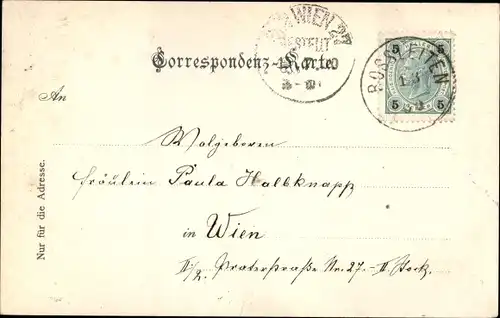 WIEN
BESTELLT
Correspondenz-Karte
5 5
ROSSATTEN
5 5
An
Nur für die Adresse.
Wolgeboren
Fräulein Paula Halbknapp
in Wien
II/2. Praterstraße Nr. 27.-II. Stock.